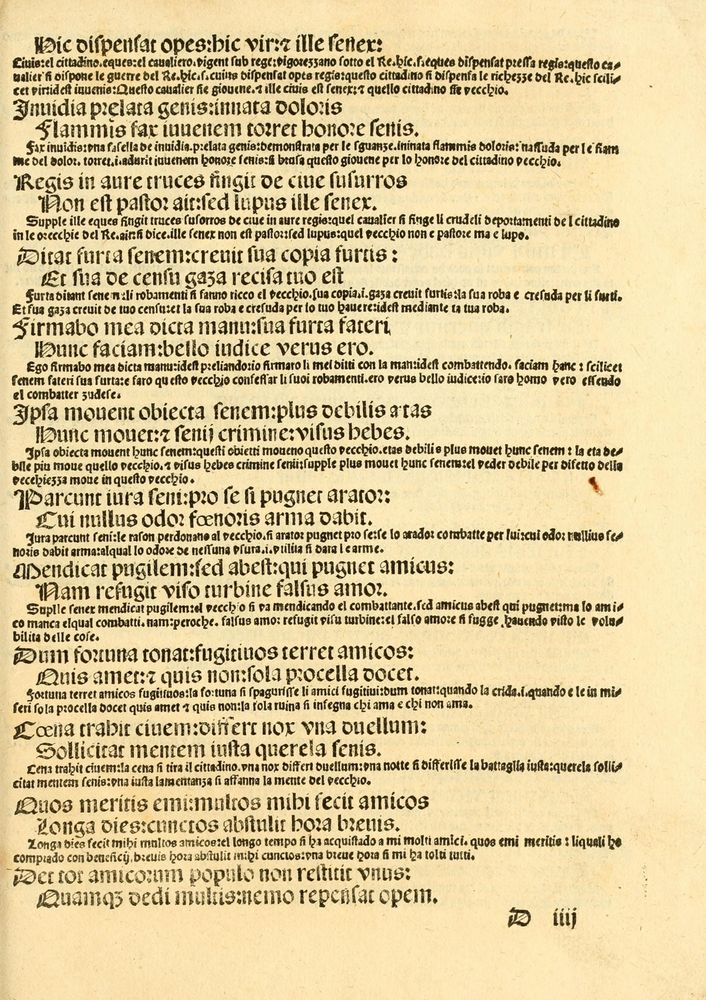 Hic dispensat opes:hic vir:⁊ ille senex:
Ciuis:el cittadino.eques:el cavaliero.vigent sub rege:vigorezzano sotto el Re.hic.s.eques dispensat pressa regis:questo ca⸗
valier si dispone le guerre del Re.hic.s.cuius dispensat opes regis:questo cittadino si dispensa le richezze del Re.hic scili⸗
cet viridis est iuuenis:Questo cavalier sie giouene.⁊ ille ciuis est senex:⁊ quello cittadino sie vecchio.
Inuidia prelata genis:innata doloris
Flammis fax iuuenem torret honore senis.
Fax inuidis:vna fasella de inuidia.prelata genis:demonstrata per le sguanze.ininata flammis doloris:nassuda per le fiam
me del dolor. torret.i.adurit iuuenem honore senis:si brusa questo giouene per lo honore del cittadino vecchio.
Regis in aure truces fingit de ciue susurros
Non est pastor ait:sed lupus ille senex.
Supple ille eques fingit truces susurros de ciue in aure regis:quel cavalier si finge li crudeli deportamenti de l cittadino
in le orecchie del Re.ait:si dice.ille senex non est pastor:sed lupus:quel vecchio non e pastore ma e lupo.
Ditat furta senem:creuit sua copia furtis :
Et sua de censu gaza recisa tuo est
Furta ditant senem:li robamenti si fanno ricco el vecchio.sua copia.i.gaza creuit furtis:la sua roba e cresuda per li furti.
Et sua gaza creuit de tuo censu:et la sua roba e cresuda per lo tuo hauere:idest mediante ta tua roba.
Firmabo mea dicta manu:sua furta fateri
Hunc faciam:bello iudice verus ero.
Ego firmabo mea dicta manu:idest preliando:io firmaro li mei ditti con la man:idest combattendo. faciam hanc : scilicet
senem fateri sua furta:e faro questo vecchio confessar li suoi robamenti.ero verus bello iudice:io saro homo vero essendo
el combatter zudese.
Ipsa mouent obiecta senem:plus debilis ætas
Hunc mouet:⁊ senij crimine:visus hebes.
Ipsa obiecta mouent hunc senem:questi obietti moueno questo vecchio.etas debilis plus mouet hunc senem : la eta de⸗
bile piu moue quello vecchio.⁊ visus hebes crimine senii:supple plus mouet hunc senem:el veder debile per difetto della
vecchiezza moue in questo vecchio.
Parcunt iura seni:pro se si pugnet arator:
Cui nullus odor fœnoris arma dabit.
Iura parcunt seni:le rason perdonano al vecchio.si arator pugnet pro se:se lo arador combatte per lui:cui odor nullius fe⸗
noris dabit arma:alqual lo odore de nessuna vsura.i.vtilita si dara le arme.
Mendicat pugilem:sed abest:qui pugnet amicus:
Nam refugit viso turbine falsus amor.
Supple senex mendicat pugilem:el vecchio si va mendicando el combattante.sed amicus abest qui pugnet:ma lo ami⸗
co manca elqual combatti.nam:peroche. falsus amor refugit visu turbine:el falso amore si fugge hauendo visto le volu⸗
bilita delle cose.
Dum fortuna tonat:fugitiuos terret amicos:
Quis amet:⁊ quis non:sola procella docet.
Fortuna terret amicos fugitiuos:la fortuna si spagurisse li amici fugitiui:dum tonat:quando la crida.i.quando e le in mi⸗
seri sola procella docet quis amet ⁊ quis non:la sola ruina si insegna chi ama e chi non ama.
Cœna trahit ciuem:differt nox vna duellum:
Sollicitat mentem iusta querela senis.
Cena trahit ciuem:la cena si tira il cittadino.vna nox differt duellum:vna notte si differisse la battaglia iusta:querela solli⸗
citat mentem senis:vna iusta lamentanza si affanna la mente del vecchio.
Quos meritis emi:multos mihi fecit amicos
Longa dies:cunctos abstulit hora breuis.
Longa dies fecit mihi multos amicos:el longo tempo si ha acquistado a mi molti amici. quos emi meritis : liquali ho
comprado con beneficij.breuis hora abstulit mihi cunctos:vna breue hora si mi ha tolti tutti.
Det tot amicorum populo non restitit vnus:
Quamqꝫ dedi multis:nemo repensat opem.
D iiij